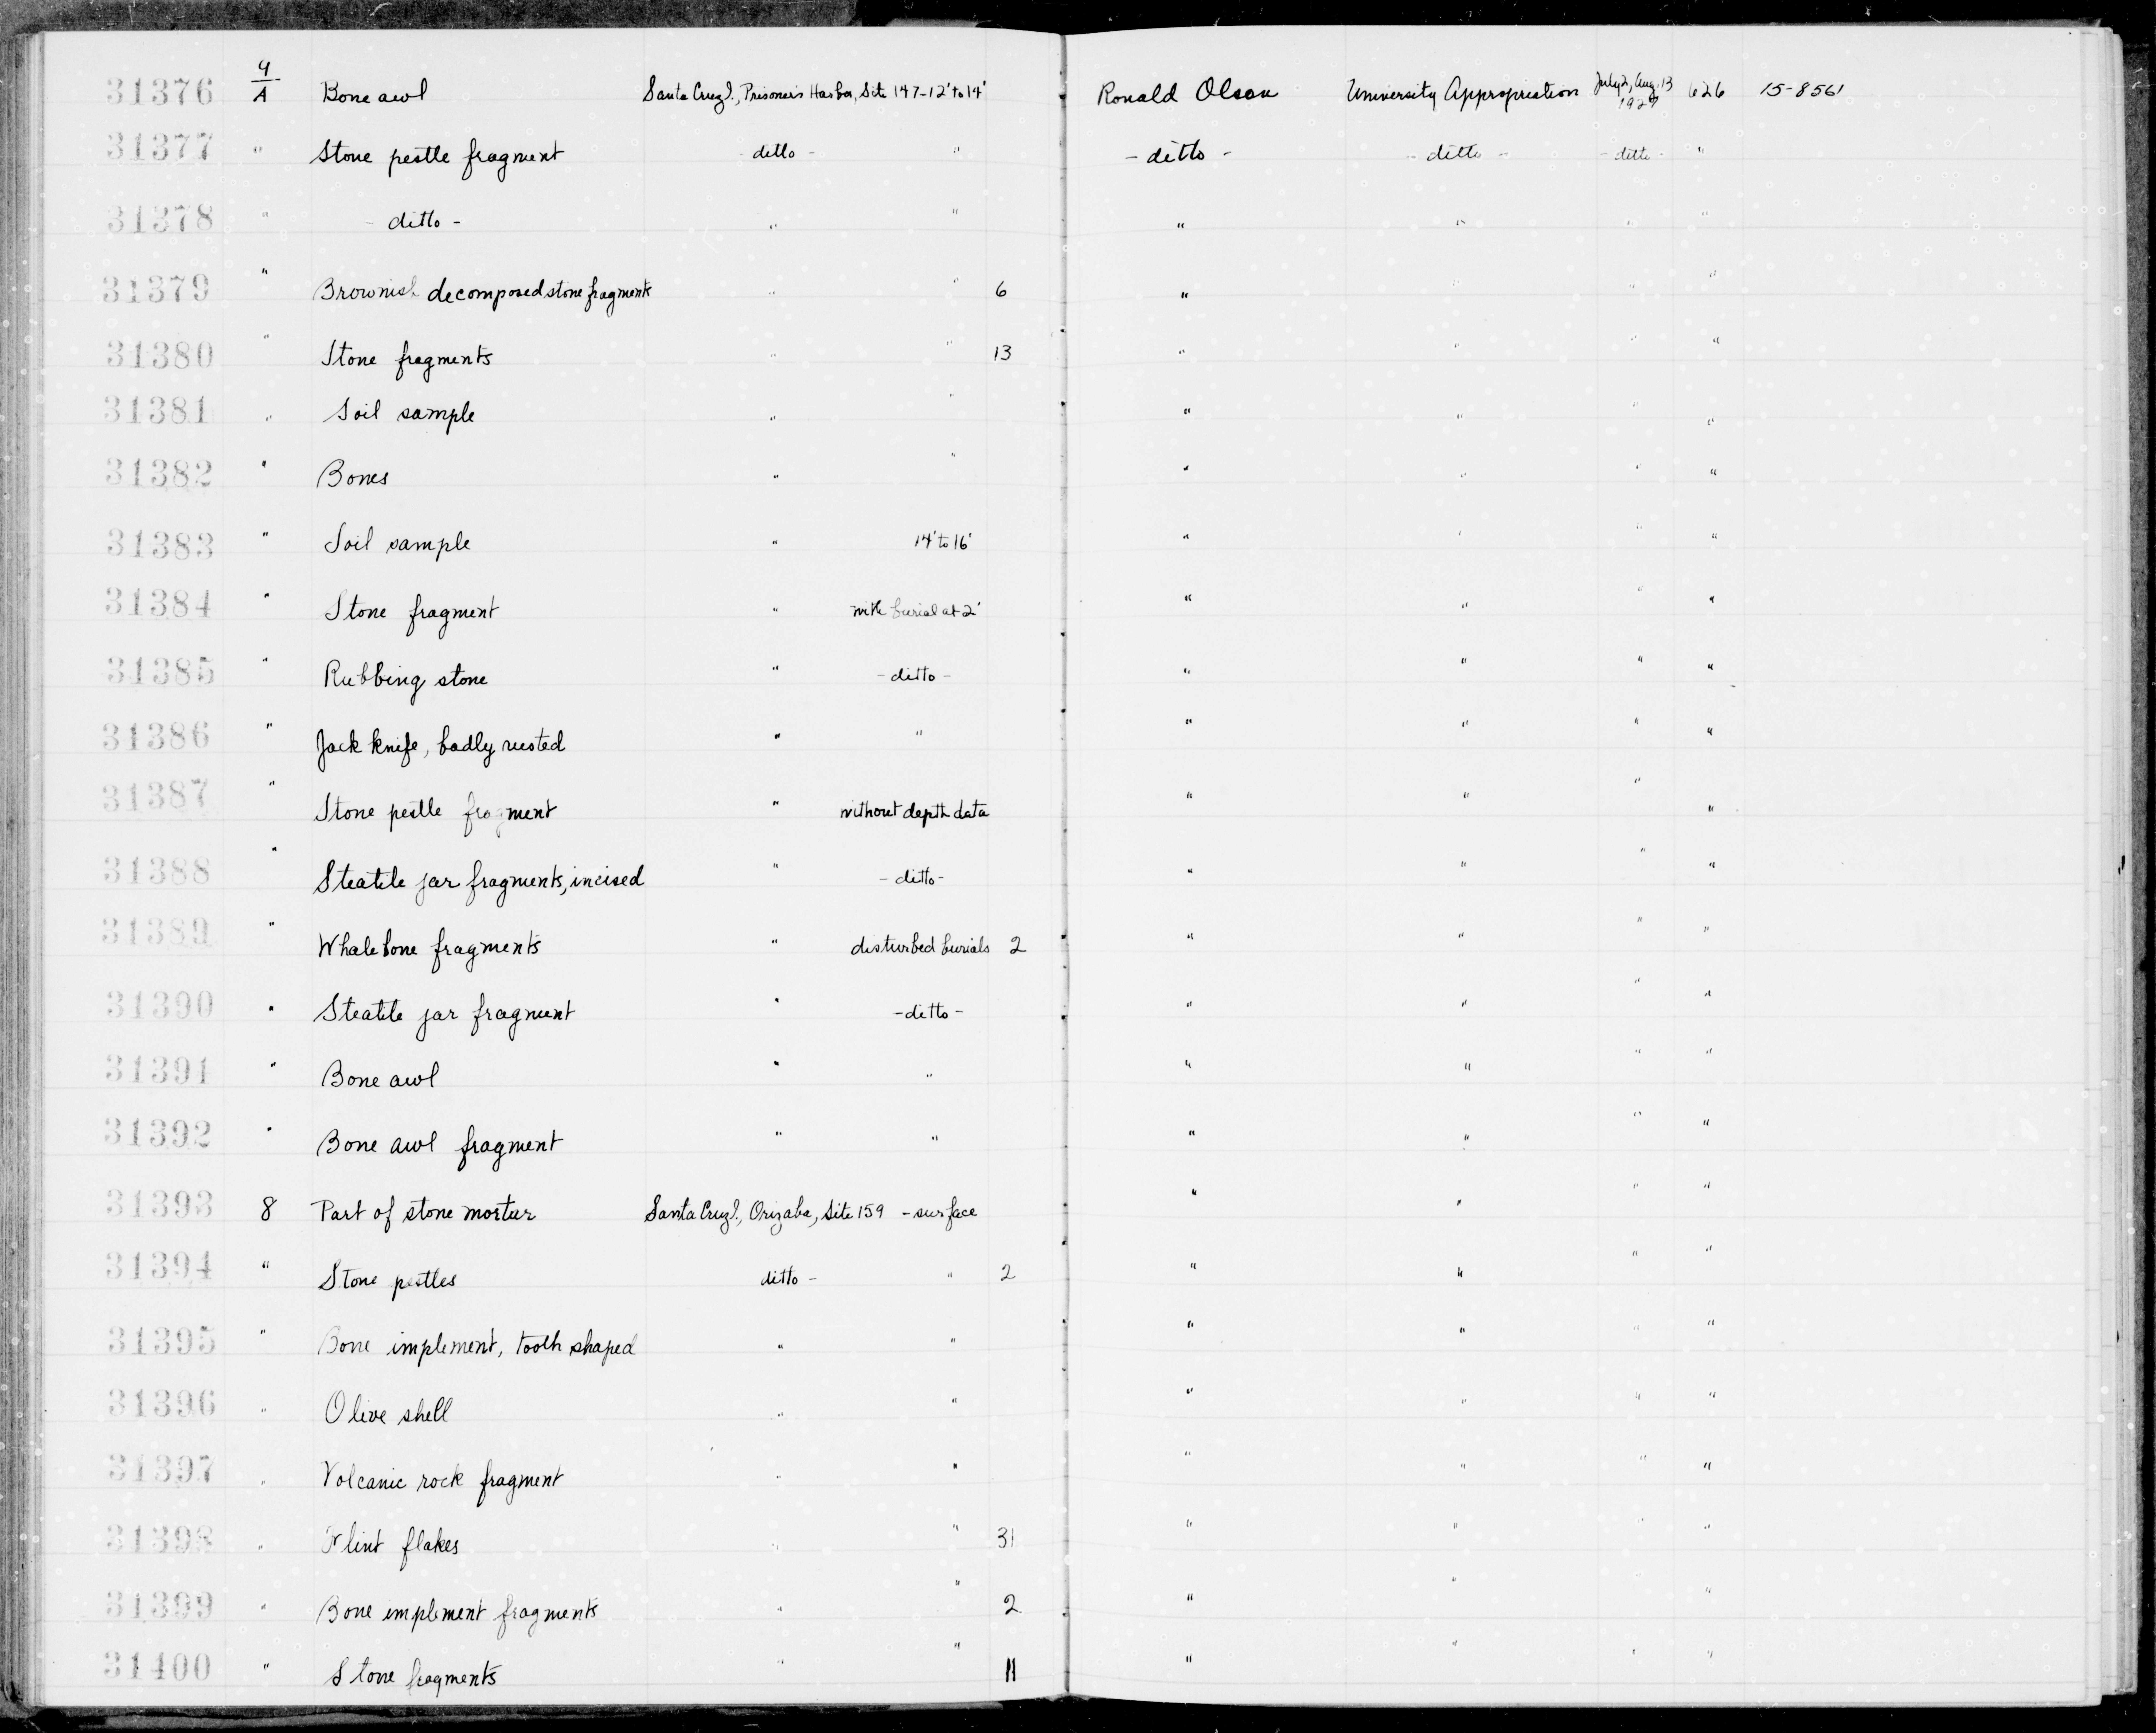 31376 4/A Bone awl Santa Cruz I., Prisoner's Harbor, Site 147-12' to 14' Ronald Olson University Appropriation July 2, Aug. 13 1927 626 15-8561
31377 " Stone pestle fragment - ditto - " - ditto - - ditto - - ditto - "
31378 " - ditto - " " " " " "
31379 " Brownish decomposed stone fragments " " 6 " " " "
31380 " Stone fragments " " 13 " " " "
31381 " Soil sample " " " " " "
31382 " Bones " " " " " "
31383 " Soil sample " 14' to 16' " " " "
31384 " Stone fragment " with burial at 2' " " " "
31385 " Rubbing stone " - ditto - " " " "
31386 " Jack knife, badly rusted " " " " " "
31387 " Stone pestle fragment " without depth data " " " "
31388 " Steatite jar fragments, incised " - ditto - " " " "
31389 " Whalebone fragments " disturbed burials 2 " " " "
31390 " Steatite jar fragment " - ditto - " " " "
31391 " Bone awl " " " " " "
31392 " Bone awl fragment " " " " " "
31393 8 Part of stone mortar Santa Cruz I., Orizaba, Site 159 - surface " " " "
31394 " Stone pestles ditto - " 2 " " " "
31395 " Bone implement, tooth shaped " " " " " "
31396 " Olive shell " " " " " "
31397 " Volcanic rock fragment " " " " " "
31398 " Flint flakes " " 31 " " " "
31399 " Bone implement fragments " " 2 " " " "
31400 " Stone fragments " " 11 " " " "